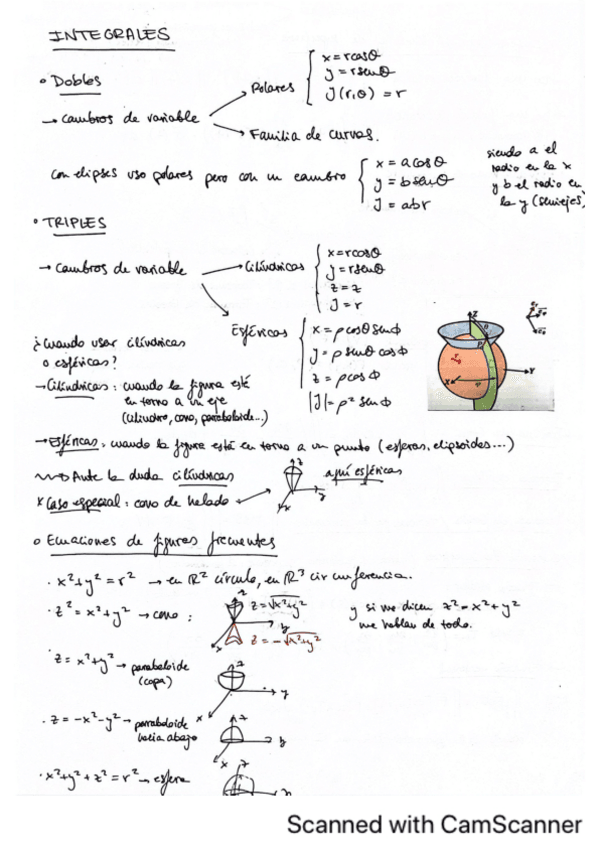 INTEGRALES
• Dobles
→ Cambios de variable
Polares
x = rcosθ
y = rsenθ
J(r,θ) = r
Familia de curvas.
Con elipses uso polares pero con un cambio
x = a cosθ
y = b senθ
J = abr
siendo a el
radio en la x
y b el radio en
la y (semiejes)
• TRIPLES
→ Cambios de variable
Cilíndricas
x = rcosθ
y = rsenθ
z = z
J = r
Esféricas
x = ρ cosθ senϕ
y = ρ senθ cosϕ
z = ρ cosϕ
|J| = ρ² senϕ
¿Cuando usar cilíndricas
o esféricas?
→ Cilíndricas: cuando la figura está
en torno a un eje
(cilindro, cono, paraboloide...)
→ Esféricas, cuando la figura está en torno a un punto (esferas, elipsoides...)
Ante la duda cilíndricas
* Caso especial: cono de helado
aquí esféricas
z
y
x
o Ecuaciones de figuras frecuentes
· x² + y² = r² → en ℝ² círculo, en ℝ³ circunferencia.
· z² = x² + y² → cono:
z = √x²+y²
z = -√x²+y²
y si me dicen z² = x² + y²
me hablan de todo.
· z = x² + y² → paraboloide
(copa)
· z = -x² - y² → paraboloide
hacia abajo
· x² + y² + z² = r² → esfera
Scanned with CamScanner